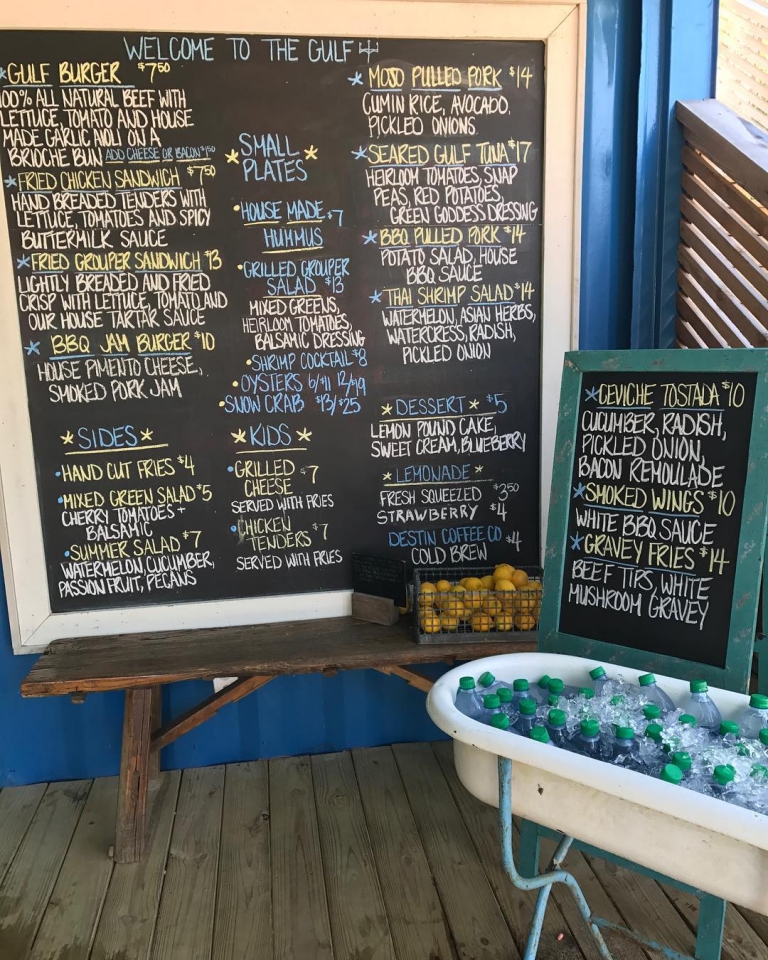 WELCOME TO THE GULF
*GULF BURGER $7.50
100% ALL NATURAL BEEF WITH
LETTUCE, TOMATO AND HOUSE
MADE GARLIC AIOLI ON A
BRIOCHE BUN ADD CHEESE OR BACON $1.50
*FRIED CHICKEN SANDWICH $7.50
HAND BREADED TENDERS WITH
LETTUCE, TOMATOES AND SPICY
BUTTERMILK SAUCE
*FRIED GROUPER SANDWICH $13
LIGHTLY BREADED AND FRIED
CRISP WITH LETTUCE, TOMATO, AND
OUR HOUSE TARTAR SAUCE
*BBQ JAM BURGER $10
HOUSE PIMENTO CHEESE,
SMOKED PORK JAM
*SIDES*
•HAND CUT FRIES $4
•MIXED GREEN SALAD $5
CHERRY TOMATOES +
BALSAMIC
•SUMMER SALAD $7
WATERMELON, CUCUMBER,
PASSION FRUIT, PECANS
*SMALL
PLATES*
•HOUSE MADE $7
HUMMUS
•GRILLED GROUPER
SALAD $13
MIXED GREENS,
HEIRLOOM TOMATOES,
BALSAMIC DRESSING
•SHRIMP COCKTAIL $8
•OYSTERS 6/$11 12/$19
•SNOW CRAB $13/$25
*KIDS*
•GRILLED $7
CHEESE
SERVED WITH FRIES
•CHICKEN $7
TENDERS
SERVED WITH FRIES
*MOJO PULLED PORK $14
CUMIN RICE, AVOCADO,
PICKLED ONIONS
*SEARED GULF TUNA $17
HEIRLOOM TOMATOES, SNAP
PEAS, RED POTATOES,
GREEN GODDESS DRESSING
*BBQ PULLED PORK $14
POTATO SALAD, HOUSE
BBQ SAUCE
*THAI SHRIMP SALAD $14
WATERMELON, ASIAN HERBS,
WATERCRESS, RADISH,
PICKLED ONION
*DESSERT* $5
LEMON POUND CAKE,
SWEET CREAM, BLUEBERRY
*LEMONADE*
FRESH SQUEEZED $3.50
STRAWBERRY $4
DESTIN COFFEE CO
COLD BREW $4
*CEVICHE TOSTADA $10
CUCUMBER, RADISH,
PICKLED ONION,
BACON REMOULADE
*SMOKED WINGS $10
WHITE BBQ SAUCE
*GRAVEY FRIES $14
BEEF TIPS, WHITE
MUSHROOM GRAVEY